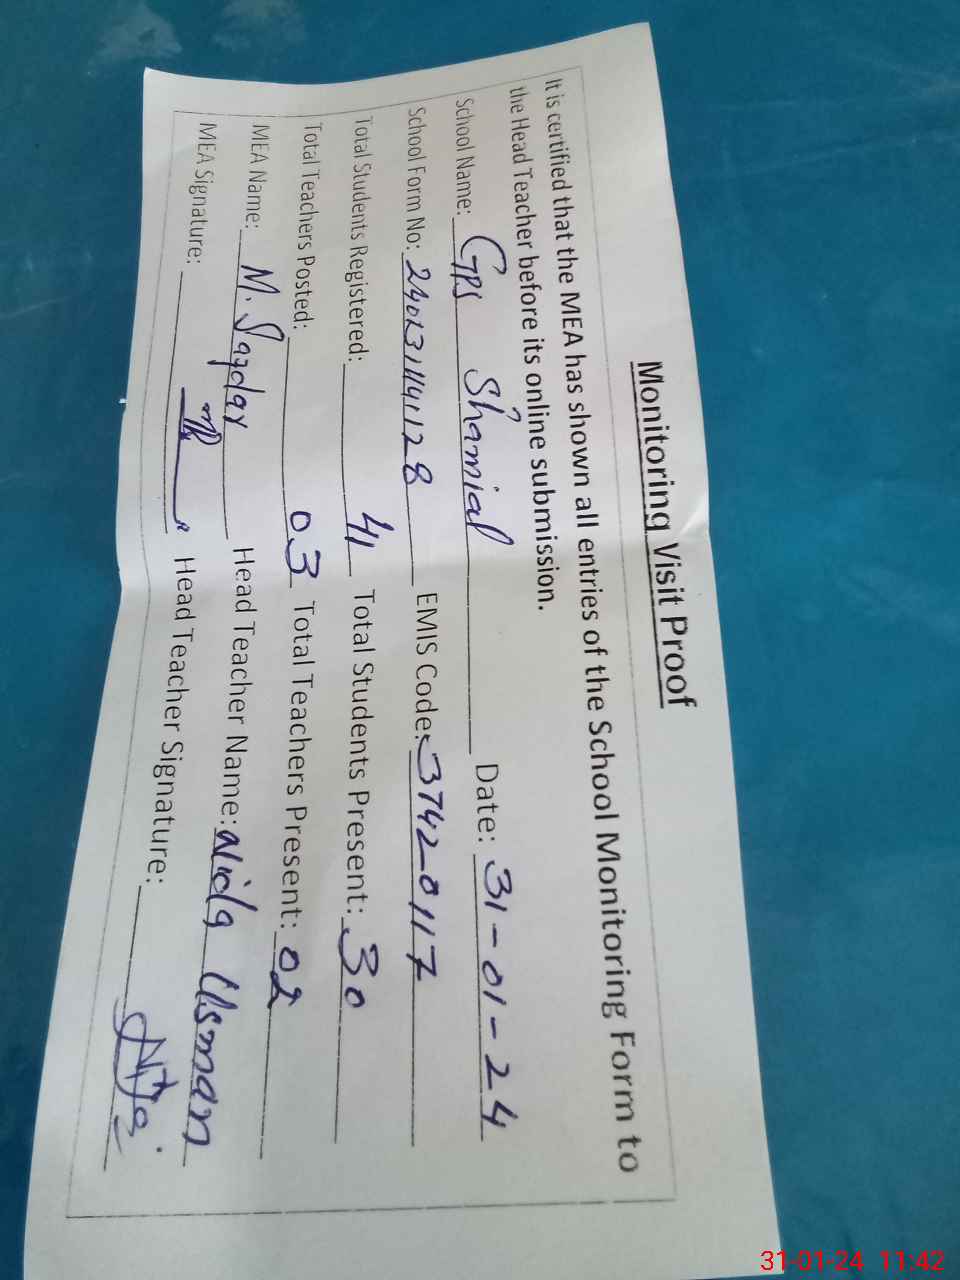 Monitoring Visit Proof
It is certified that the MEA has shown all entries of the School Monitoring Form to
the Head Teacher before its online submission.
School Name: GPS Shamial Date: 31-01-24
School Form No: EMIS Code: 3742-0117
Total Students Registered: 41 Total Students Present: 30
Total Teachers Posted: 03 Total Teachers Present: 02
MEA Name: M. Saqdar Head Teacher Name: Nida Usman
MEA Signature: Head Teacher Signature:
31-01-24 11:42